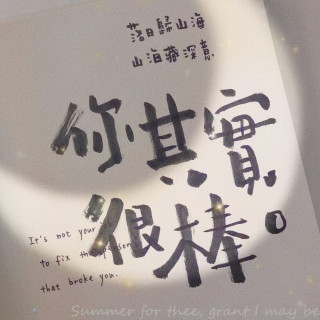 落日歸山海
山海藏深意
你其實
很棒。
It's not your
to fix the person
that broke you.
Summer for thee, grant I may be